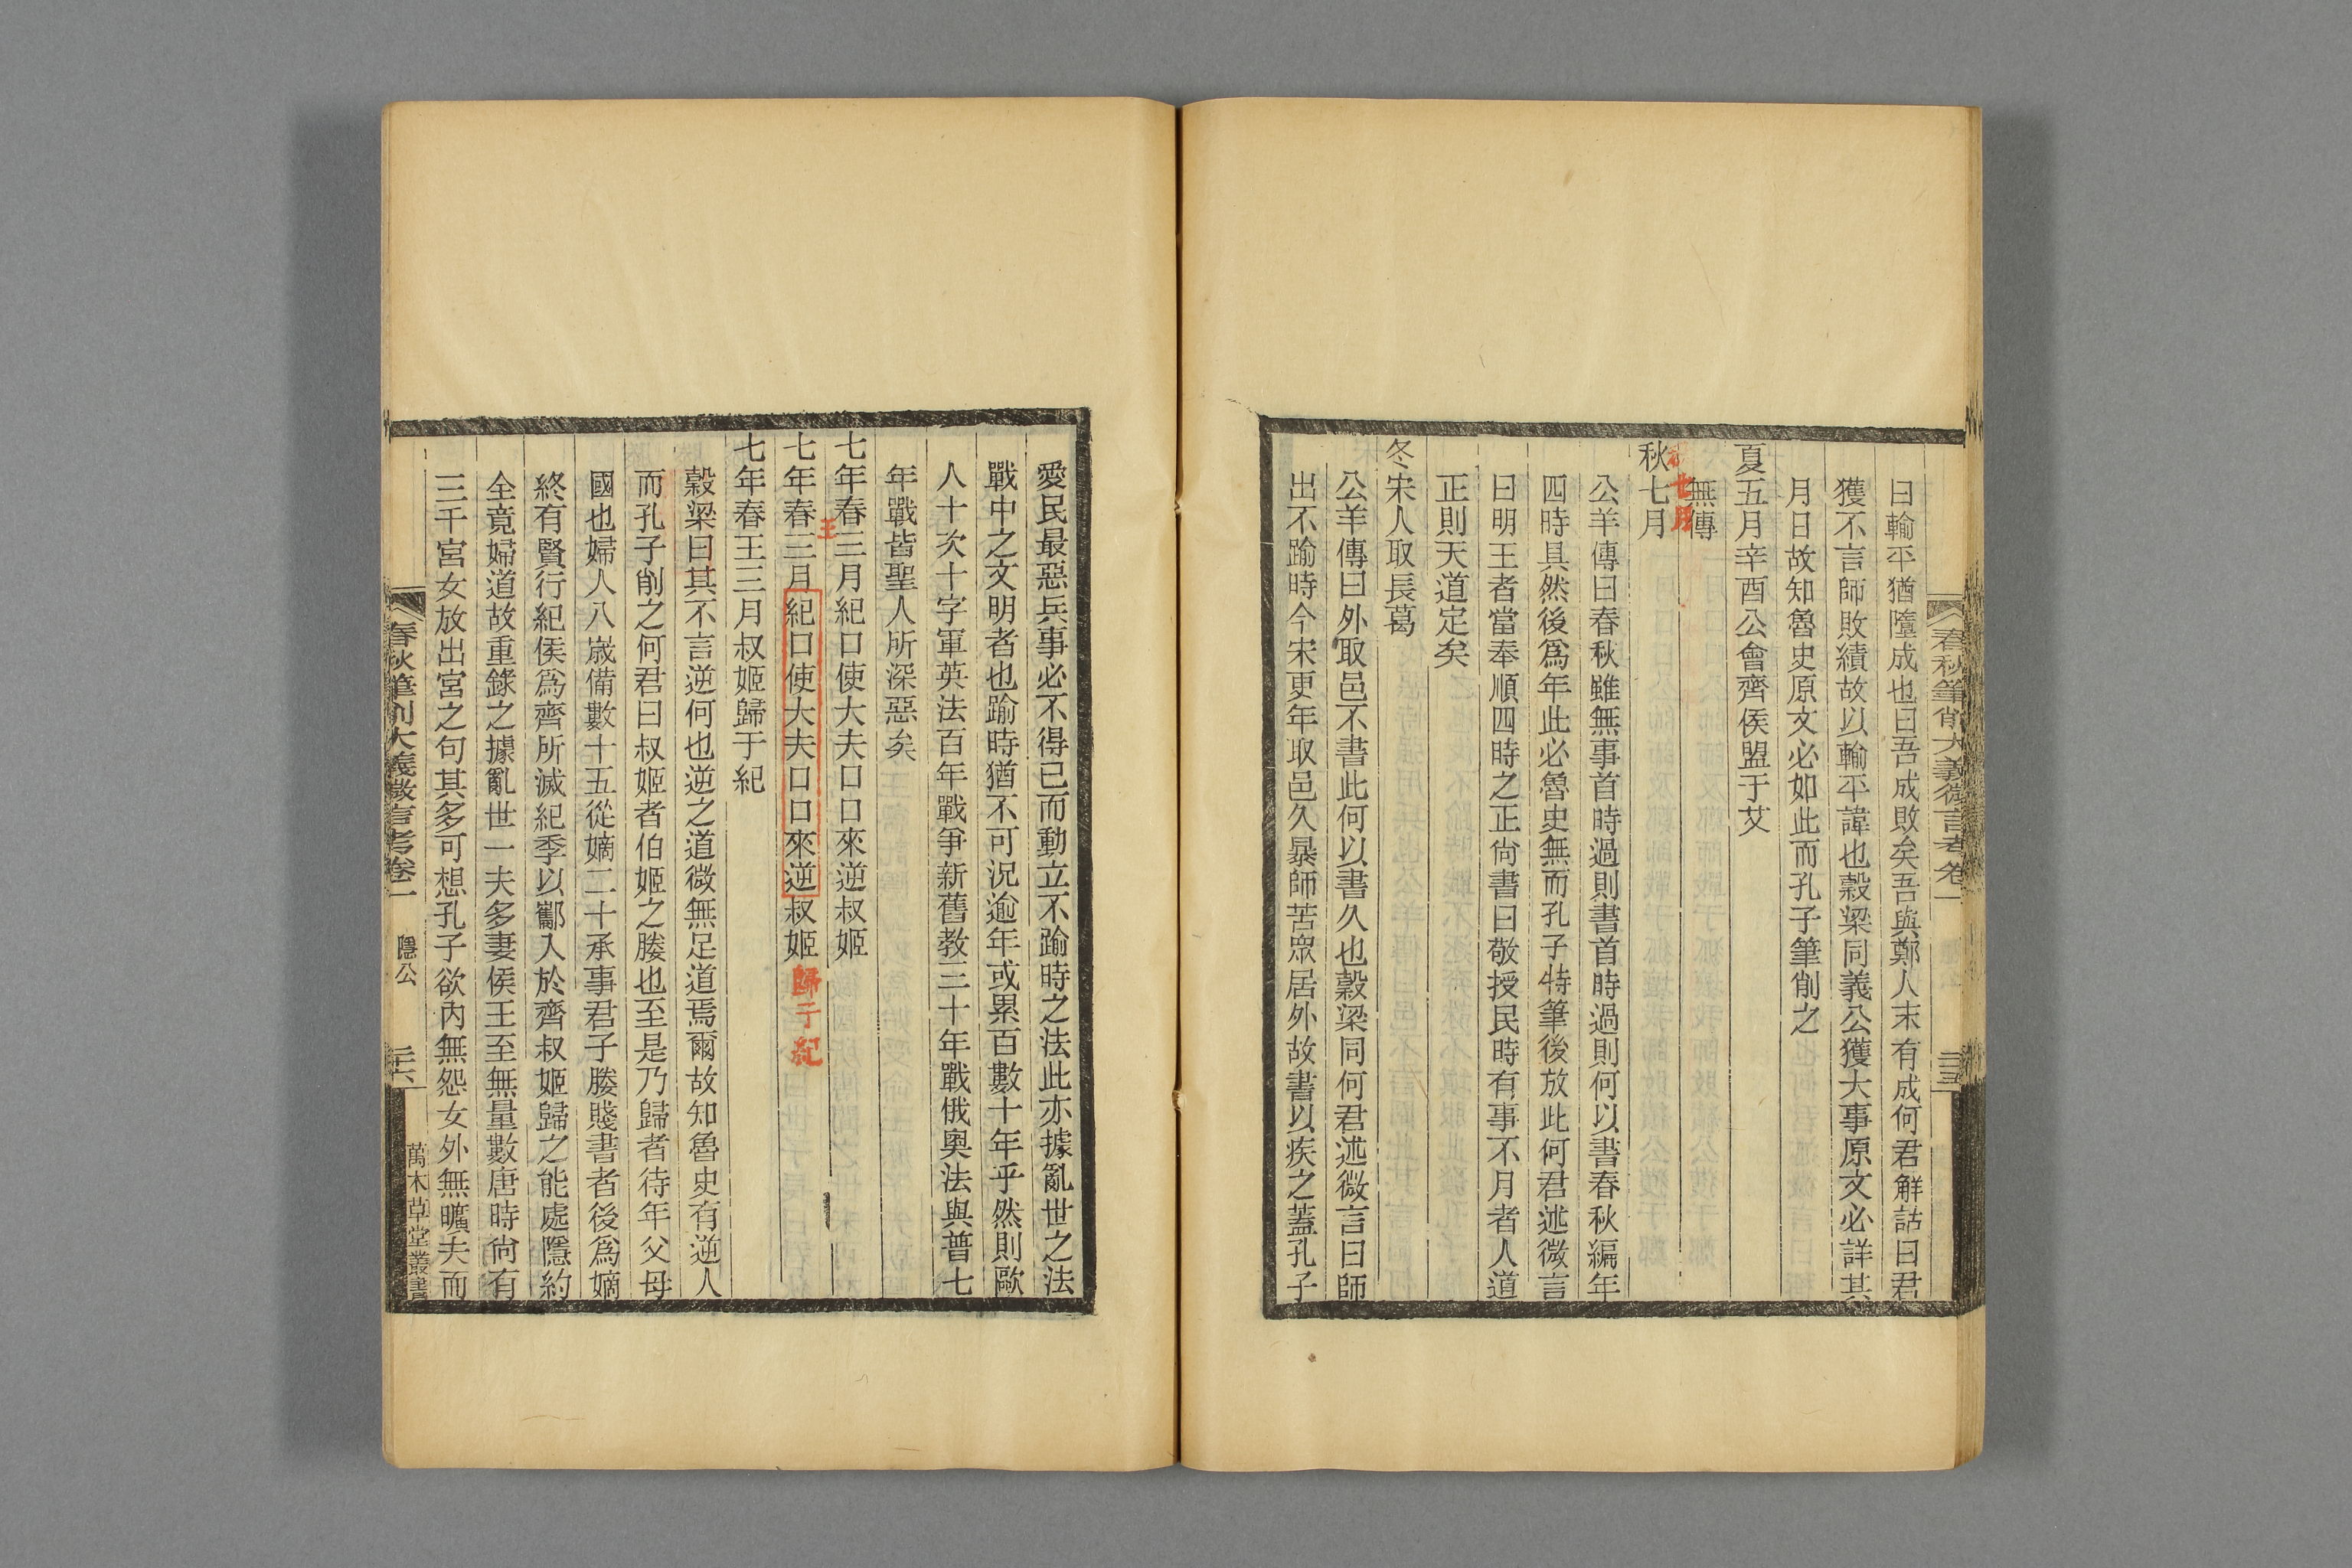 春秋筆削大義微言考卷一
曰輸平猶墮成也曰吾成敗矣吾與鄭人末有成何君解詁曰君
獲不言師敗績故以輸平諱也穀梁同義公獲大事原文必詳其
月日故知魯史原文必如此而孔子筆削之
夏五月辛酉公會齊侯盟于艾
無傳
七月
秋七月
公羊傳曰春秋雖無事首時過則書首時過則何以書春秋編年
四時具然後爲年此必魯史無而孔子特筆後放此何君述微言
曰明王者當奉順四時之正尙書曰敬授民時有事不月者人道
正則天道定矣
冬宋人取長葛
公羊傳曰外取邑不書此何以書久也穀梁同何君述微言曰師
出不踰時今宋更年取邑久暴師苦眾居外故書以疾之蓋孔子
愛民最惡兵事必不得已而動立不踰時之法此亦據亂世之法
戰中之文明者也踰時猶不可況逾年或累百數十年乎然則歐
人十次十字軍英法百年戰爭新舊教三十年戰俄奧法與普七
年戰皆聖人所深惡矣
七年春三月紀囗使大夫囗囗來逆叔姬
王
七年春三月紀囗使大夫囗囗來逆叔姬歸于紀
七年春王三月叔姬歸于紀
穀梁曰其不言逆何也逆之道微無足道焉爾故知魯史有逆人
而孔子削之何君曰叔姬者伯姬之媵也至是乃歸者待年父母
國也婦人八歲備數十五從嫡二十承事君子媵賤書者後爲嫡
終有賢行紀侯爲齊所滅紀季以酅入於齊叔姬歸之能處隱約
全竟婦道故重錄之據亂世一夫多妻侯王至無量數唐時尙有
三千宮女放出宮之句其多可想孔子欲內無怨女外無曠夫而
春秋筆削大義微言考卷一 隱公 三六 萬木草堂叢書